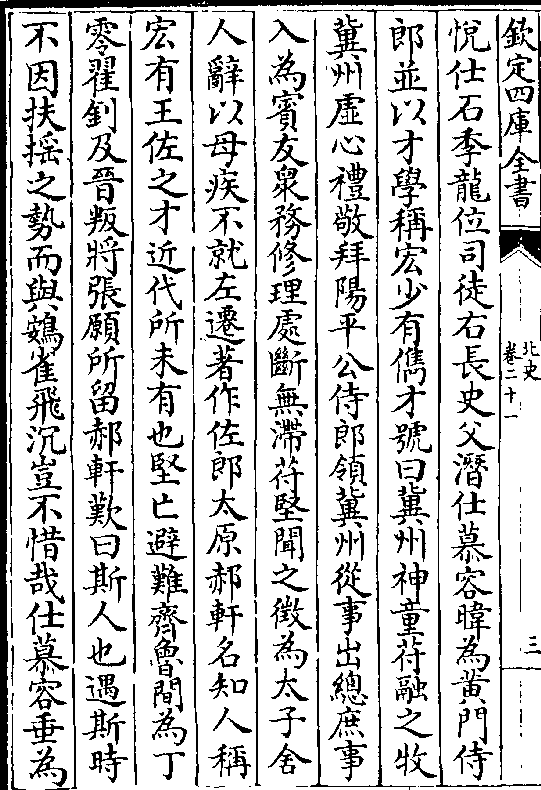 欽定四庫全書
北史
卷二十一
三
悅仕石季龍位司徒右長史父潛仕慕容暐為黃門侍
郎並以才學稱宏少有儁才號曰冀州神童苻融之牧
冀州虛心禮敬拜陽平公侍郎領冀州從事出總庶事
入為賓友衆務修理處斷無滯苻堅聞之徵為太子舍
人辭以母疾不就左遷著作佐郎太原郝軒名知人稱
宏有王佐之才近代所未有也堅亡避難齊魯間為丁
零翟釗及晉叛將張願所留郝軒歎曰斯人也遇斯時
不因扶揺之勢而與鷃雀飛沉豈不惜哉仕慕容垂為